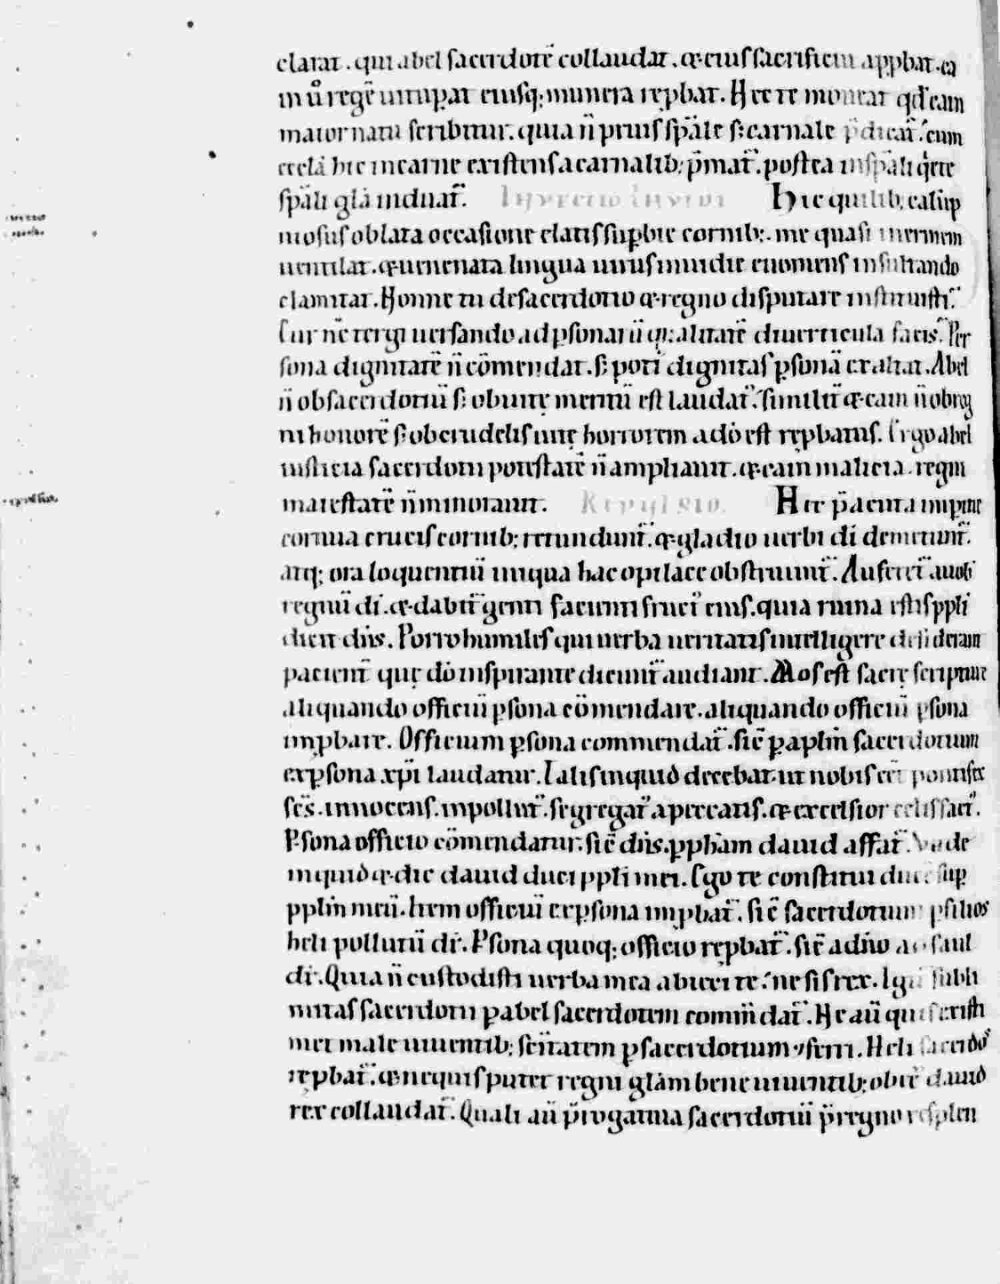 clarat. qui abel sacerdotē collaudat. & eius sacrificiū app̱bat. ca
in ů regē uitup̱at eiusq; munera rep̱bat. Hec te moneat qđ cain
maior natu scribitur. quia n̄ prius sp̄ale s; carnale p̄dicat̄. cum
eccl̄a hic in carne existens a carnalib; p̄mat̄. postea in sp̄ali q̄ete
sp̄ali gl̄a induat̄. Inuectio inuidi Hic quilib; calūp
niosus oblata occasione elatis sup̱bie cornib;. me quasi inermem
uentilat. & uenenata lingua uirus inuidie euomens insultando
clamitat. Nonne tu de sacerdotio & regno disputare instituisti.
Cur n̄c tergiuersando ad p̱sonarū qualitatē diuerticula facis. Per
sona dignitatē n̄ cōmendat. s; poti dignitas p̱sonā exaltat. Abel
n̄ ob sacerdotiū s; ob uite meritū est laudat̄. similit̄ & cain n̄ ob reg
ni honorē s; ob crudelis uite horrorem a dō est rep̱batus. Ergo abel
iusticia sacerdotii potestatē n̄ ampliauit. & cain malicia regni
maiestatē n̄ minorauit. Repulsio. Hec p̄acuta impinc
cornua crucis cornib; retundunt̄. & gladio uerbi dī demetunt̄.
atq; ora loquentiū iniqua hac opilace obstruunt̄. Auferet̄ a uob
regnū dī. & dabit̄ genti facienti fruct̄ eius. quia ruina estis ppli
dicit dn̄s. Porro humiles qui uerba ueritatis intelligere desiderant
pacient̄ que dō inspirante dicunt̄ audiant. Mos est sacre scripture
aliquando officiū p̱sona cōmendare. aliquando officiū p̱sona
imp̱bare. Officium p̱sona commendat̄. sic̄ p̱ aplm̄ sacerdotium
ex p̱sona xp̄i laudatur. Talis inquid decebat. ut nobis eēt pontifex
sc̄s. innocens. inpollut̄. segregat̄ a peccatis. & excelsior celis fact̄.
P̱sona officio cōmendatur. sic̄ dn̄s. p̱ pph̄am dauid affat̄. Vade
inquid & dic dauid duci ppli mei. Ego te constitui duce sup̱
pplm̄ meū. Item officiū ex p̱sona imp̱bat̄. sic̄ sacerdotium p̱ filios
heli pollutū dr̄. P̱sona quoq; officio rep̱bat̄. sic̄ a dn̄o ad saul
dr̄. Quia n̄ custodisti uerba mea abieci te ne sis rex. Igit̄ subli
mitas sacerdotii p̱ abel sacerdotem comm̄dat̄. Ne aū qui existi
met male uiuentib; sc̄itatem p̱ sacerdotium 9ferri. Heli sacerdos
rep̱bat̄. & ne quis putet regni gl̄am bene uiuentib; obēē dauid
rex collaudat̄. Quali aū p̄rogatiua sacerdotiū p̄ regno resplen